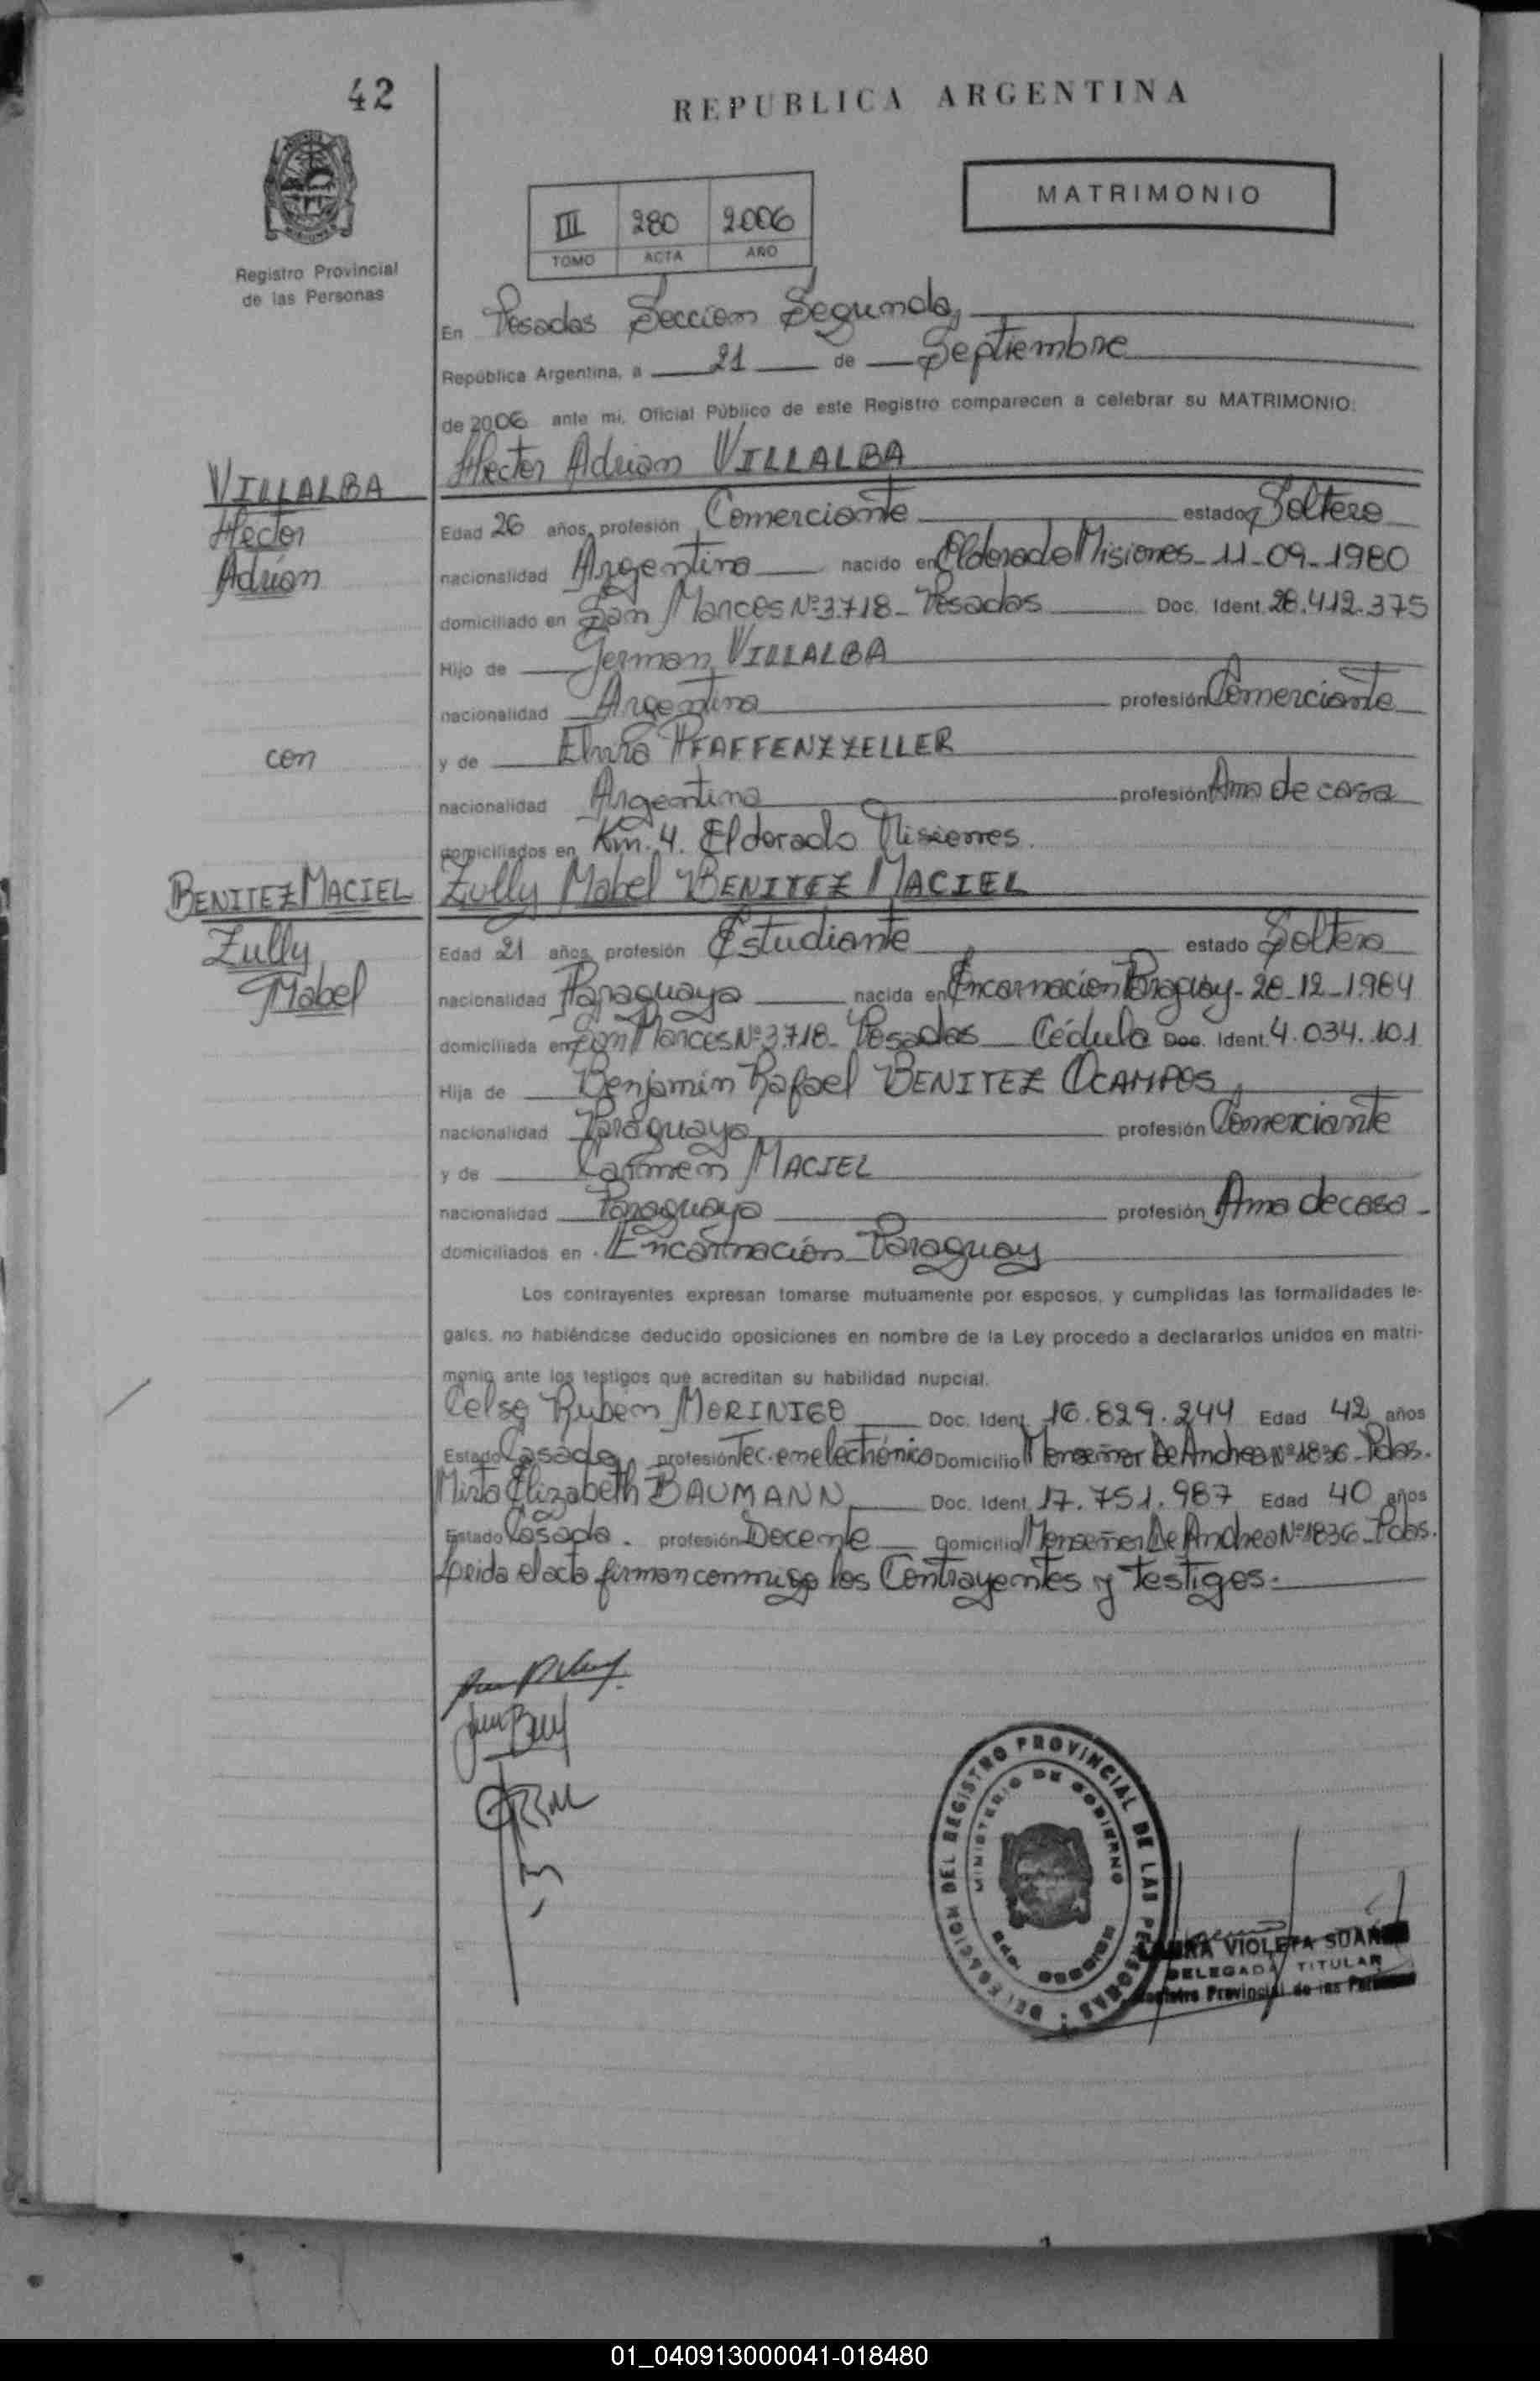 42
REPUBLICA ARGENTINA
MATRIMONIO
III 280 2006
TOMO ACTA AÑO
Registro Provincial
de las Personas
En Posadas Seccion Segunda,
República Argentina, a 21 de Septiembre
de 2006 ante mi, Oficial Público de este Registro comparecen a celebrar su MATRIMONIO:
VILLALBA
Héctor
Adrián
Hector Adrian VILLALBA
Edad 26 años, profesión Comerciante estado Soltero
nacionalidad Argentina nacido en Eldorado Misiones - 11-09-1980
domiciliado en San Marcos Nº 3718 - Posadas Doc. Ident. 28.412.375
Hijo de German VILLALBA
nacionalidad Argentina profesión Comerciante
con
y de Elvira PFAFFENZZELLER
nacionalidad Argentina profesión Ama de casa
domiciliados en Km. 4. Eldorado Misiones.
BENITEZ MACIEL
Zully
Mabel
Zully Mabel BENITEZ MACIEL
Edad 21 años, profesión Estudiante estado Soltera
nacionalidad Paraguaya nacida en Encarnacion Paraguay - 28-12-1984
domiciliada en San Marcos Nº 3718 - Posadas Cédula Doc. Ident. 4.034.101
Hija de Benjamin Rafael BENITEZ OCAMPOS,
nacionalidad Paraguaya profesión Comerciante
y de Carmen MACIEL
nacionalidad Paraguaya profesión Ama de casa -
domiciliados en Encarnación Paraguay
Los contrayentes expresan tomarse mutuamente por esposos, y cumplidas las formalidades le-
gales, no habiéndose deducido oposiciones en nombre de la Ley procedo a declararlos unidos en matri-
monio ante los testigos que acreditan su habilidad nupcial.
Celso Rubén MORINIGO Doc. Ident. 16.829.244 Edad 42 años
Estado Casado, profesión Tec. en electrónica Domicilio Monseñor De Andrea Nº 1836 - Pdas.
Mirta Elizabeth BAUMANN Doc. Ident. 17.751.987 Edad 40 años
Estado Casada. profesión Docente Domicilio Monseñor De Andrea Nº 1836 - Pdas.
Leida el acta firman conmigo los Contrayentes y Testigos.
DELEGACION DEL REGISTRO PROVINCIAL DE LAS PERSONAS
MINISTERIO DE GOBIERNO
VIOLETA SUAREZ
DELEGADA TITULAR
Registro Provincial de las Personas
01_040913000041-018480